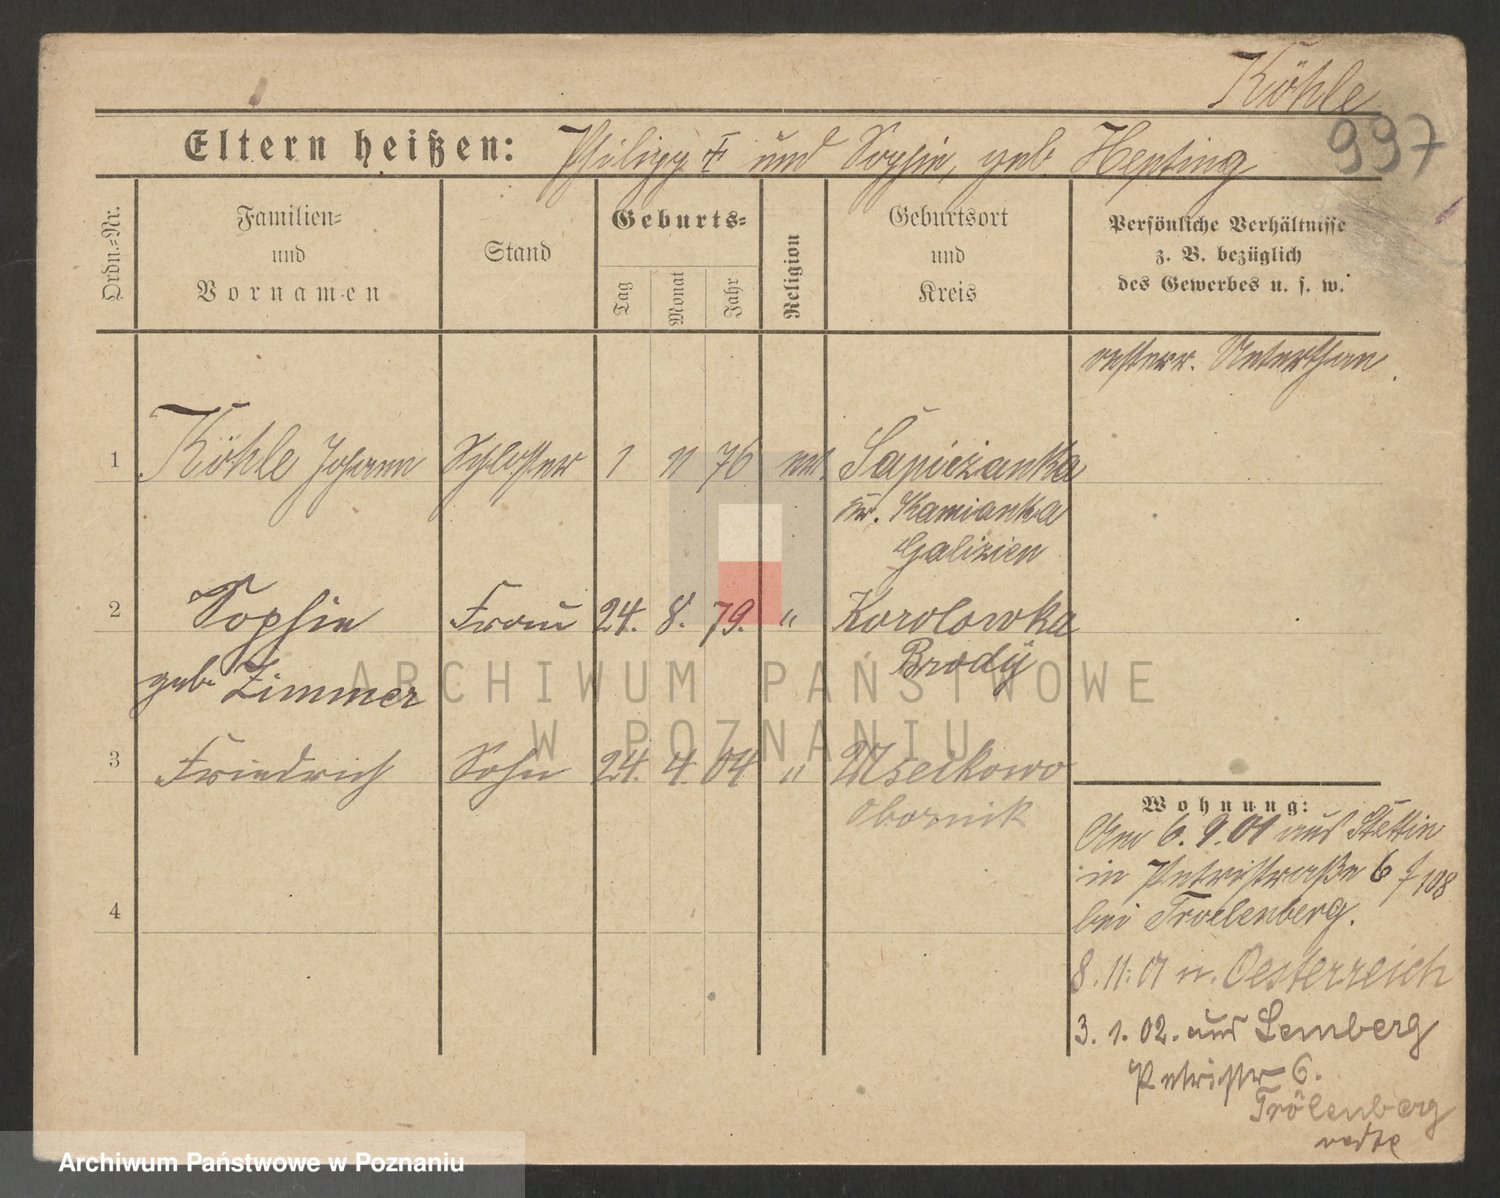 Köhle
997
Eltern heißen: Philipp † und Sophie, geb. Hepting
Ordn.-Nr.
Familien-
und
Vornamen
Stand
Geburts-
Tag
Monat
Jahr
Religion
Geburtsort
und
Kreis
Persönliche Verhältnisse
z. B. bezüglich
des Gewerbes u. s. w.
oesterr. Unterthan.
1 Köhle Johann Schlosser 1 11 76 ev. Sapiezanka
Kr. Kamianka
Galizien
2 Sophie Frau 24. 8. 79. " Korolowka
geb. Zimmer Brody
3 Friedrich Sohn 24. 4. 04 "
Obornik
4
Wohnung:
Am 6. 9. 01 aus Stettin
in Petristraße 6 f 108
bei Troelenberg.
8. 11. 01 n. Oesterreich
3. 1. 02. aus Lemberg
Petristr 6.
Trölenberg
ARCHIWUM PAŃSTWOWE
W POZNANIU
Archiwum Państwowe w Poznaniu